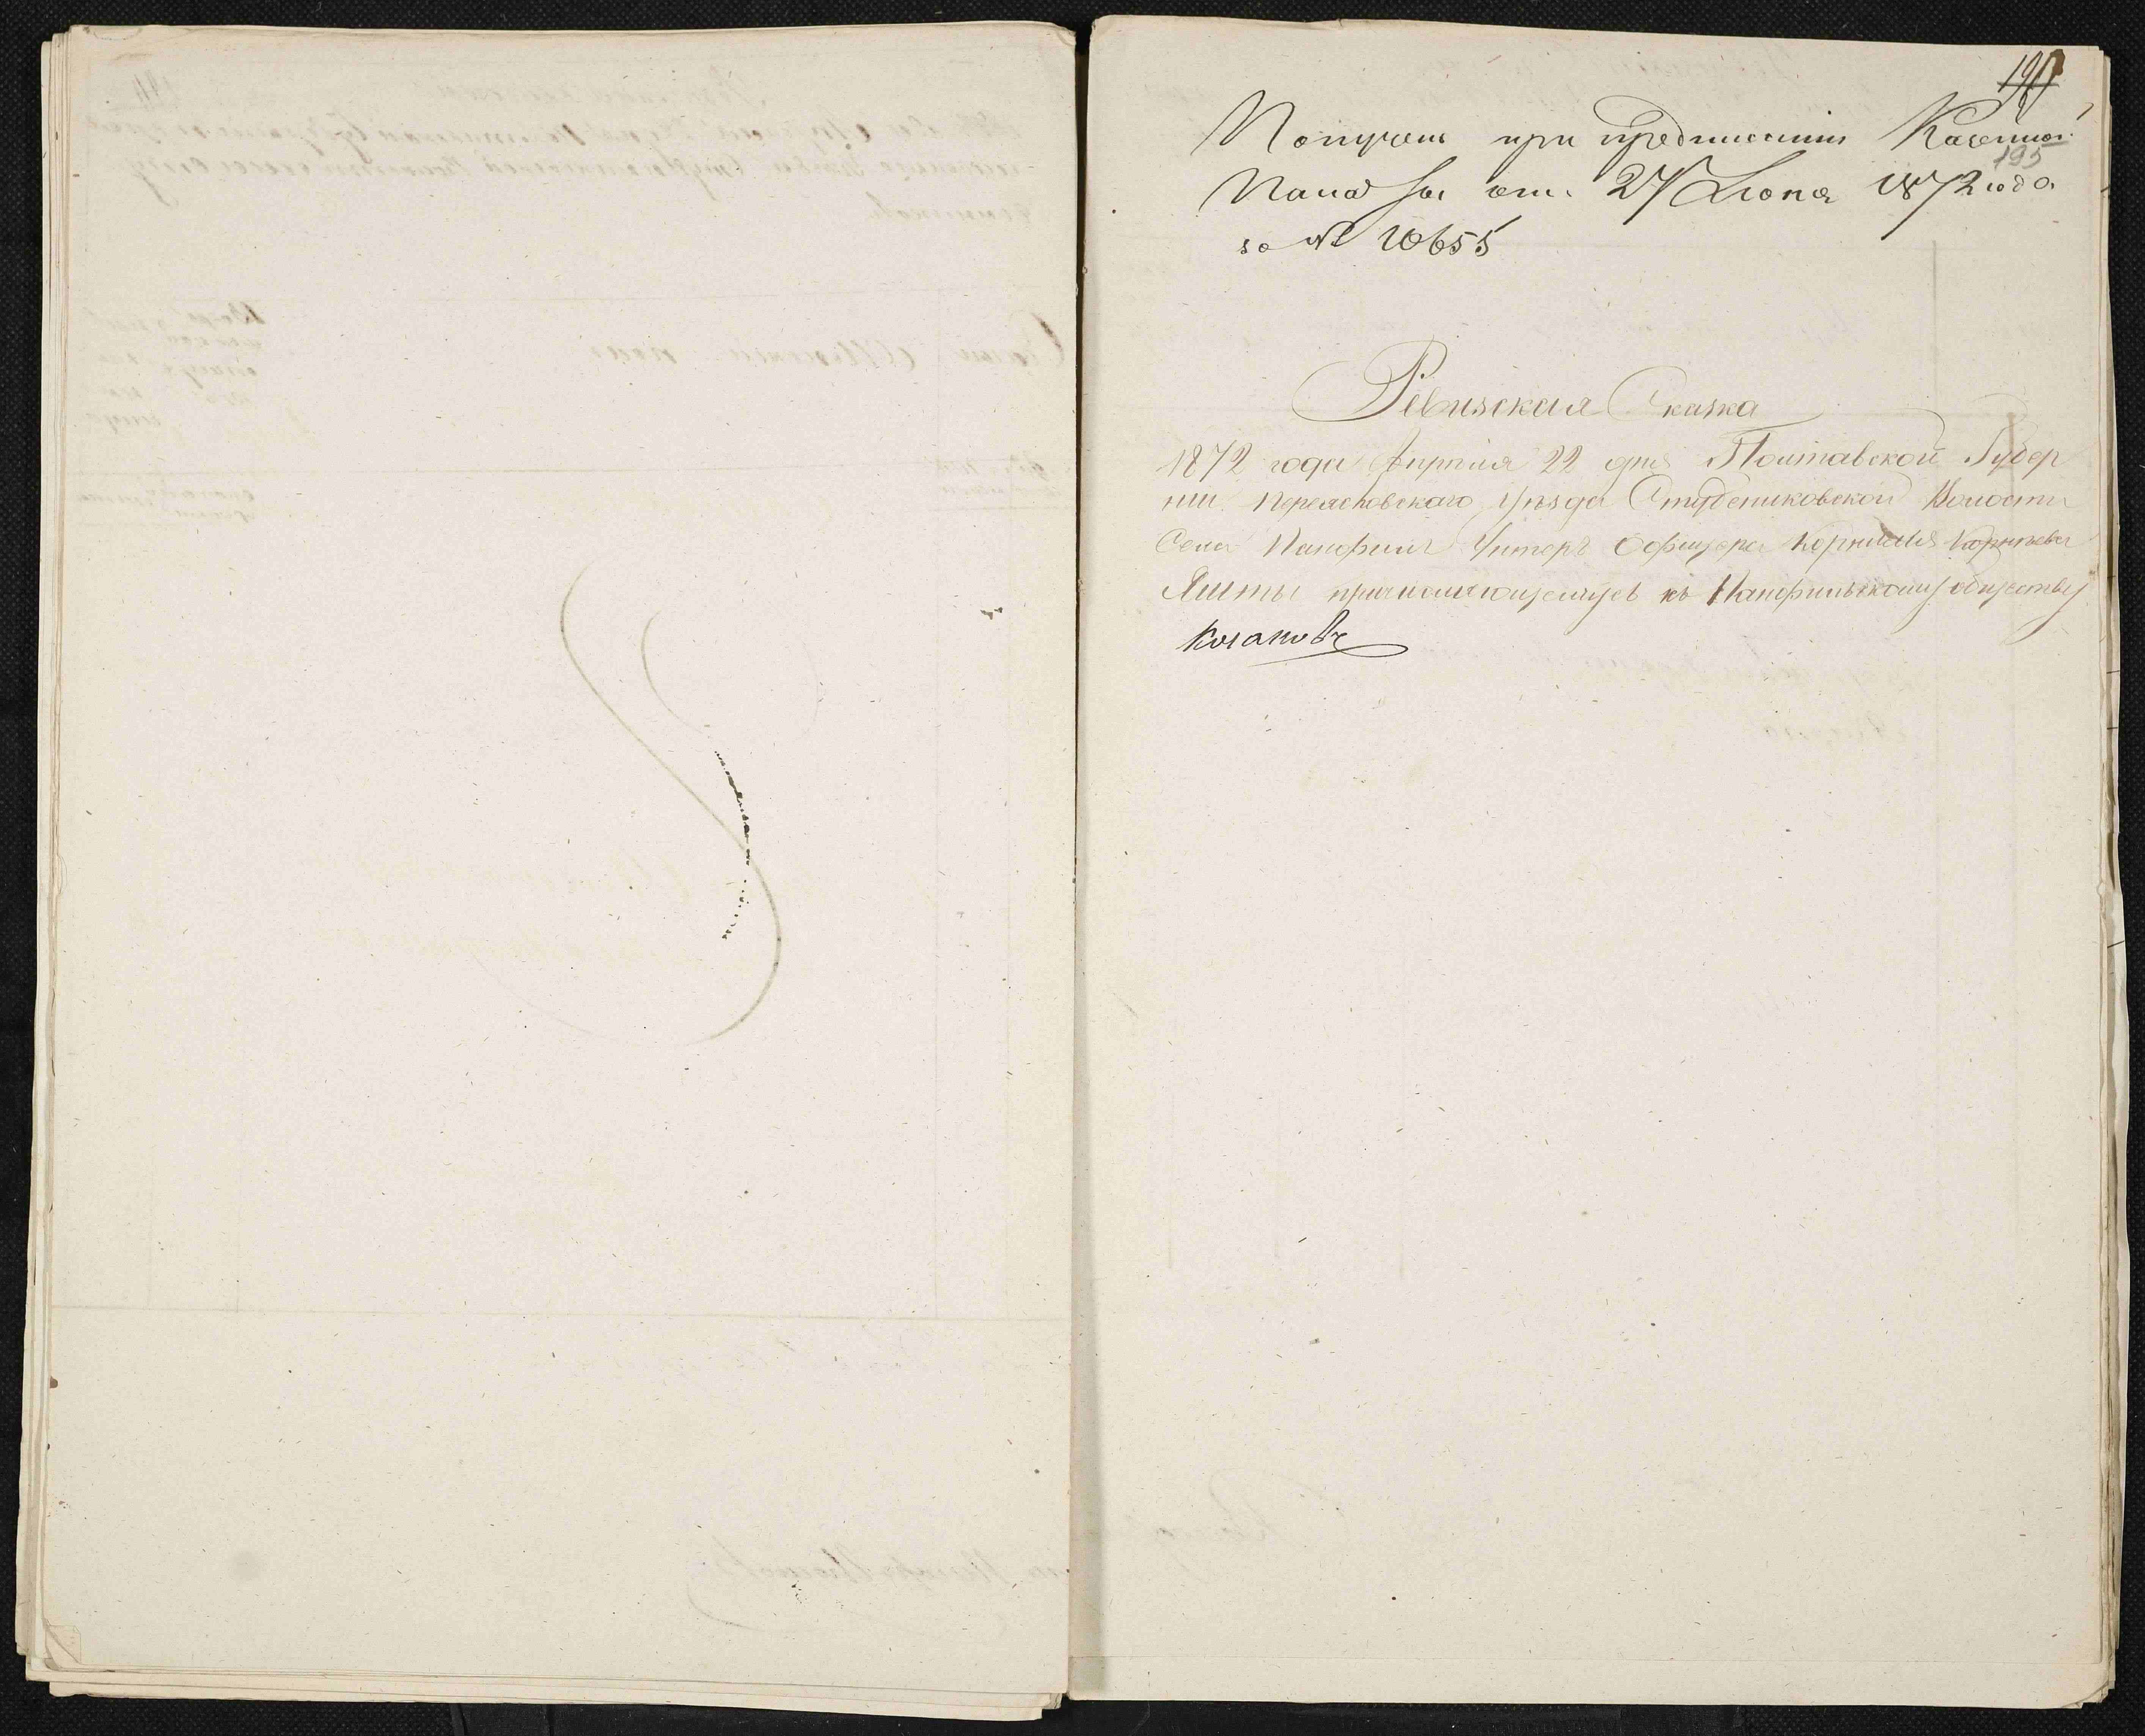 195
Получена при предписании Казенной
Палаты от 27 Июня 1872 года
за № 10655
Ревизская Сказка
1872 года Апреля 22 дня Полтавской Губер
нии Переясловского Уѣзда Студениковской Волости
Села Панфил Унтеръ Офицера Корнилия Корнѣева
Ялиты причисляющемуся къ Панфильскому обществу
козаковъ